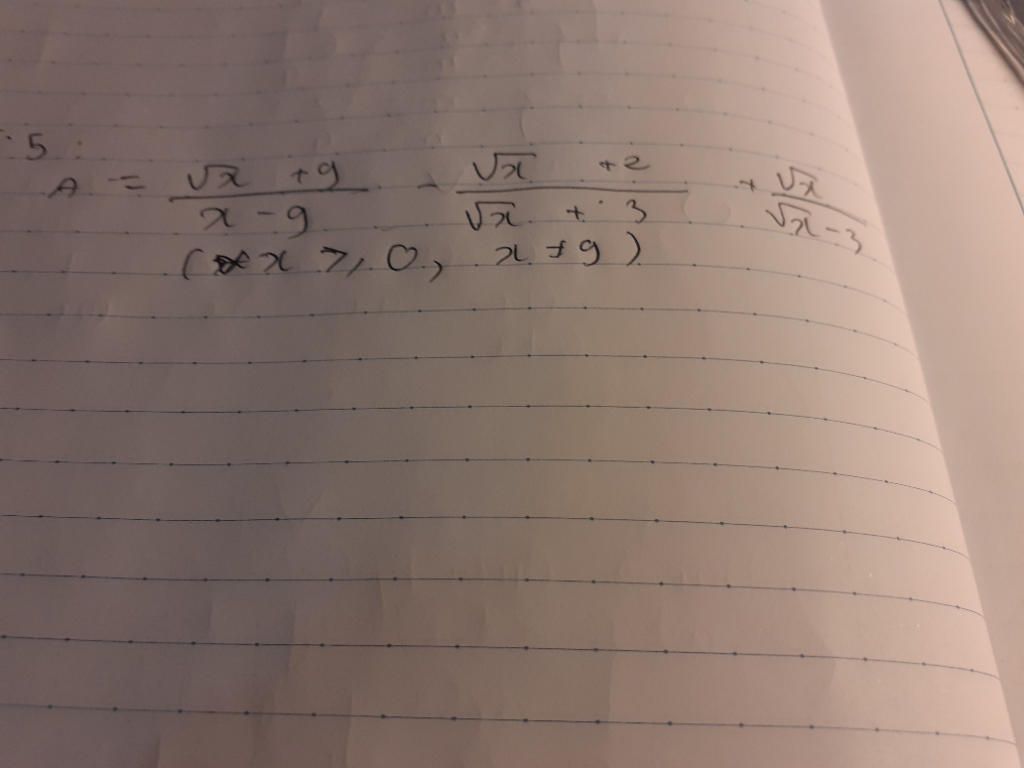 5 :
A = (√x + 9)/(x - 9) - (√x + 2)/(√x + 3) + √x/(√x - 3)
(x ⩾ 0, x ≠ 9)